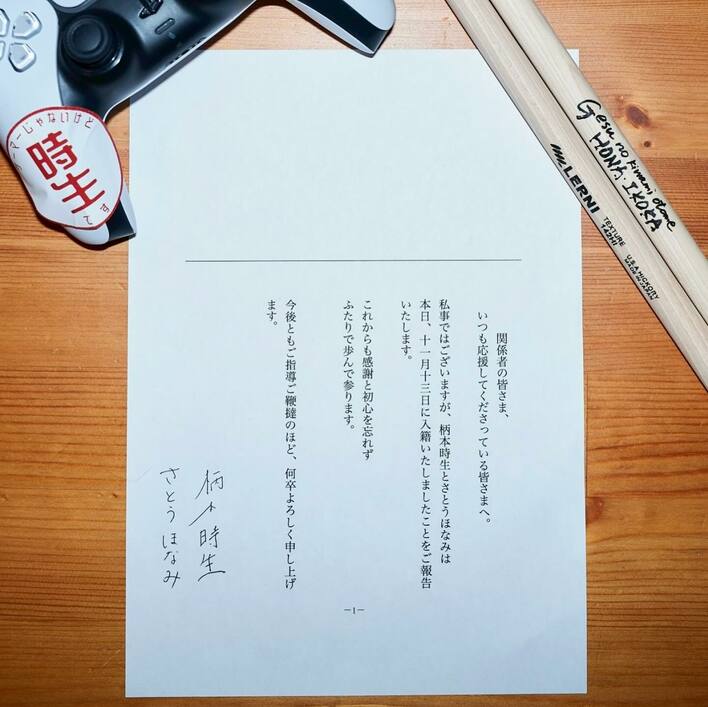 関係者の皆さま、
いつも応援してくださっている皆さまへ。
私事ではございますが、柄本時生とさとうほなみは
本日、十一月十三日に入籍いたしましたことをご報告
いたします。
これからも感謝と初心を忘れず
ふたりで歩んで参ります。
今後ともご指導ご鞭撻のほど、何卒よろしく申し上げ
ます。
柄本時生
さとうほなみ
—1—
ーマーじゃないけど
時生
です
Gesu no Kiwami Otome
HONA. IKOKA
LERNI
TEXTURE
USA HICKORY